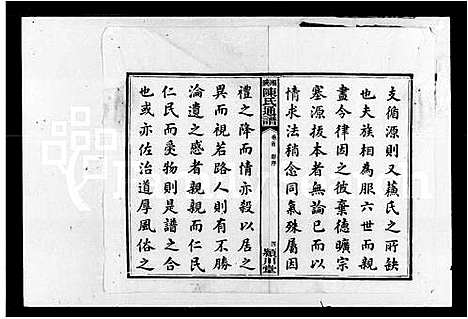 支循源則又蘇氏之所缺
也夫族相為服六世而親
盡今律因之彼棄德曠宗
塞源拔本者無論已而以
情求法稍念同氣殊屬因
陳氏通譜
卷首
新序
四
潁川堂
禮之降而情亦殺以居之
異而視若路人則有不勝
淪遺之感者親親而仁民
仁民而愛物則是譜之合
也或亦佐治道厚風俗之